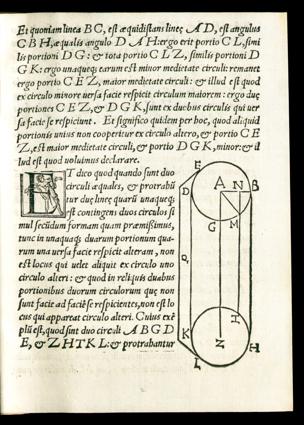 Et quoniam linea BC, est æquidistans lineę AD, est angulus
CBH, æqualis angulo DAH: ergo erit portio CL, simi
lis portioni DG: & tota portio CLZ, similis portioni D
GK: ergo unaquęq; earum est minor medietate circuli: remanet
ergo portio CEZ, maior medietate circuli: & illud est quod
ex circulo minore uersa facie respicit circulum maiorem: ergo duę
portiones CEZ, & DGK, sunt ex duobus circulis qui uer
sa facie se respiciunt. Et significo quidem per hoc, quod aliquid
portionis unius non cooperitur ex circulo altero, & portio CE
Z, est maior medietate circuli, & portio DGK, minor: & il
lud est quod uoluimus declarare.
ET dico quod quando sunt duo
circuli æquales, & protrahũ
tur duę lineę quarũ unaquæq;
est contingens duos circulos si
mul secũdum formam quam præmisimus,
tunc in unaquaq; duarum portionum qua-
rum una uersa facie respicit alteram, non
est locus qui uelet aliquit ex circulo uno
circulo alteri: & quod in reliquis duabus
portionibus duorum circulorum quę non
sunt facie ad faciẽ se respicientes, non est lo
cus qui appareat circulo alteri. Cuius exẽ
plũ est, quod sint duo circuli ABGD
E, & ZHTKL: & protrahantur
E
A N B
D
G M
H
K Z H
L